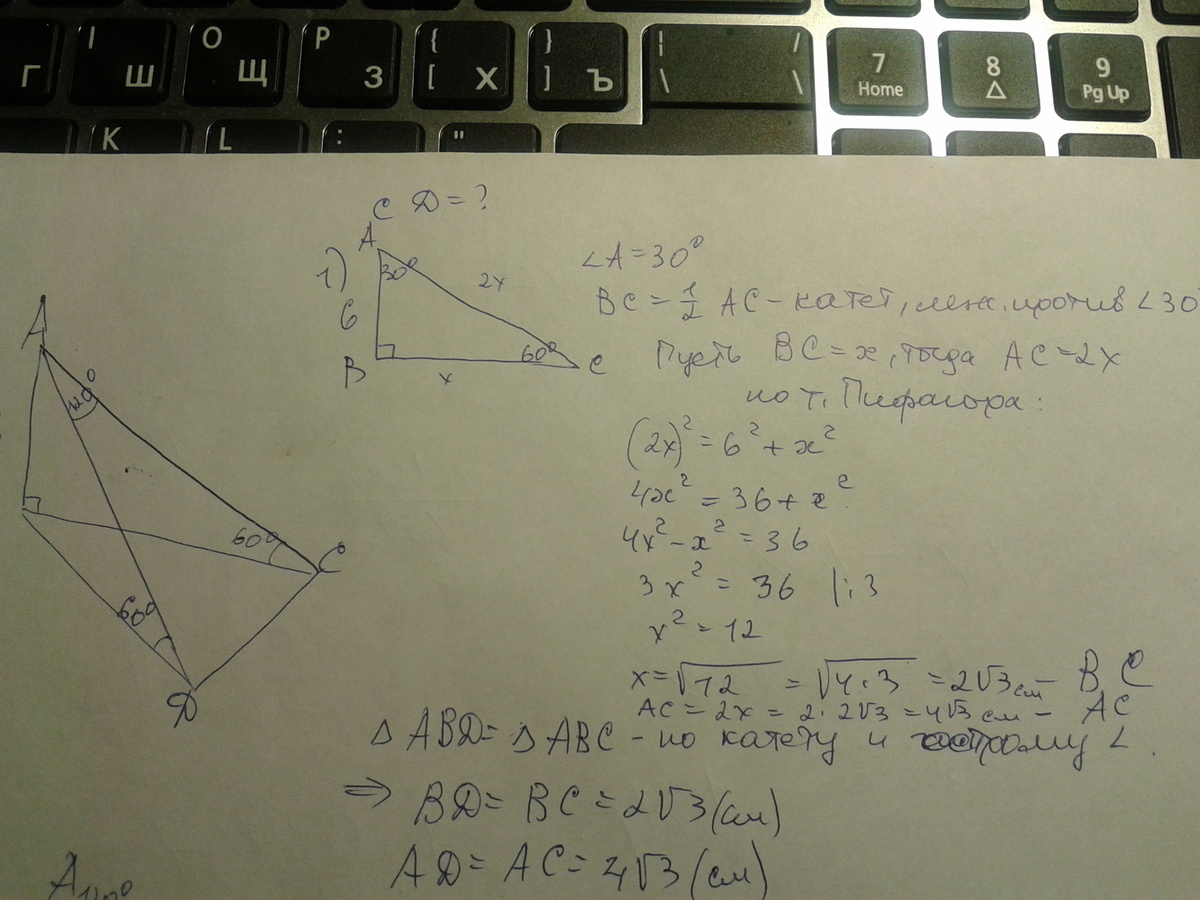 Г
I Ш
O Щ
P З
{ [ Х
} ] Ъ
| / \ \
7 Home
8 △
9 Pg Up
K
L
:
"
CD = ?
1)
A
30°
2x
6
60°
B
x
C
∠A = 30°
BC = 1/2 AC - катет, леж. против ∠30°
Пусть BC = x, тогда AC = 2x
по т. Пифагора:
(2x)² = 6² + x²
4x² = 36 + x²
4x² - x² = 36
3x² = 36 |:3
x² = 12
x = √12 = √4·3 = 2√3 см - BC
AC = 2x = 2·2√3 = 4√3 см - AC
△ABD = △ABC - по катету и острому ∠.
⇒ BD = BC = 2√3 (см)
AD = AC = 4√3 (см)
A
120°
60°
C
60°
D
A